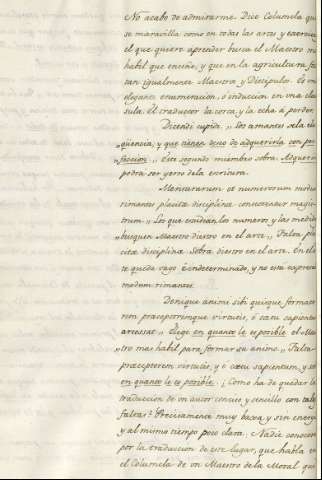 No acabo de admirarme. Dice Columela que
se maravilla como en todas las artes y exercicios
el que quiere aprender busca el Maestro mas
habil que enseñe, y que en la agricultura fal
tan igualmente Maestros y Discipulos. Es una
elegante enumeracion, ó induccion en una clau
sula. El traductor la corta, y la echa á perder.
Dicendi cupidi „ Los amantes de la elo
„qüencia, y que tienen deseo de adquirirla con per
„feccion „ Este segundo miembro sobra. Adquerir
podrá ser yerro de la escritura.
Mensurarum et numerorum modum
rimantes placitae disciplinae consectentur magis
trum. „ Los que estudian los numeros y las medidas
„busquen Maestro diestro en el arte „ Falta pla
citae disciplinae. Sobra diestro en el arte. En el
te queda vago é indeterminado, y no esta expresado
modum rimantes.
Denique animi sibi quisque formato
rem praeceptoremque virtutis, é coetu sapientum
arcessat „ Elige en quanto le es posible el Maes
„tro mas habil para formar su animo. „ Falta
praeceptorem virtutis, y é coetu sapientum, y sobra
en quanto le es posible. ¿Como ha de quedar la
traduccion de un autor conciso y sencillo con tales
faltas? Precisamente muy baxa y sin energia
y al mismo tiempo poco clara. Nadie conocerá
por la traduccion de este lugar, que habla en
el Columela de un Maestro de la Moral que